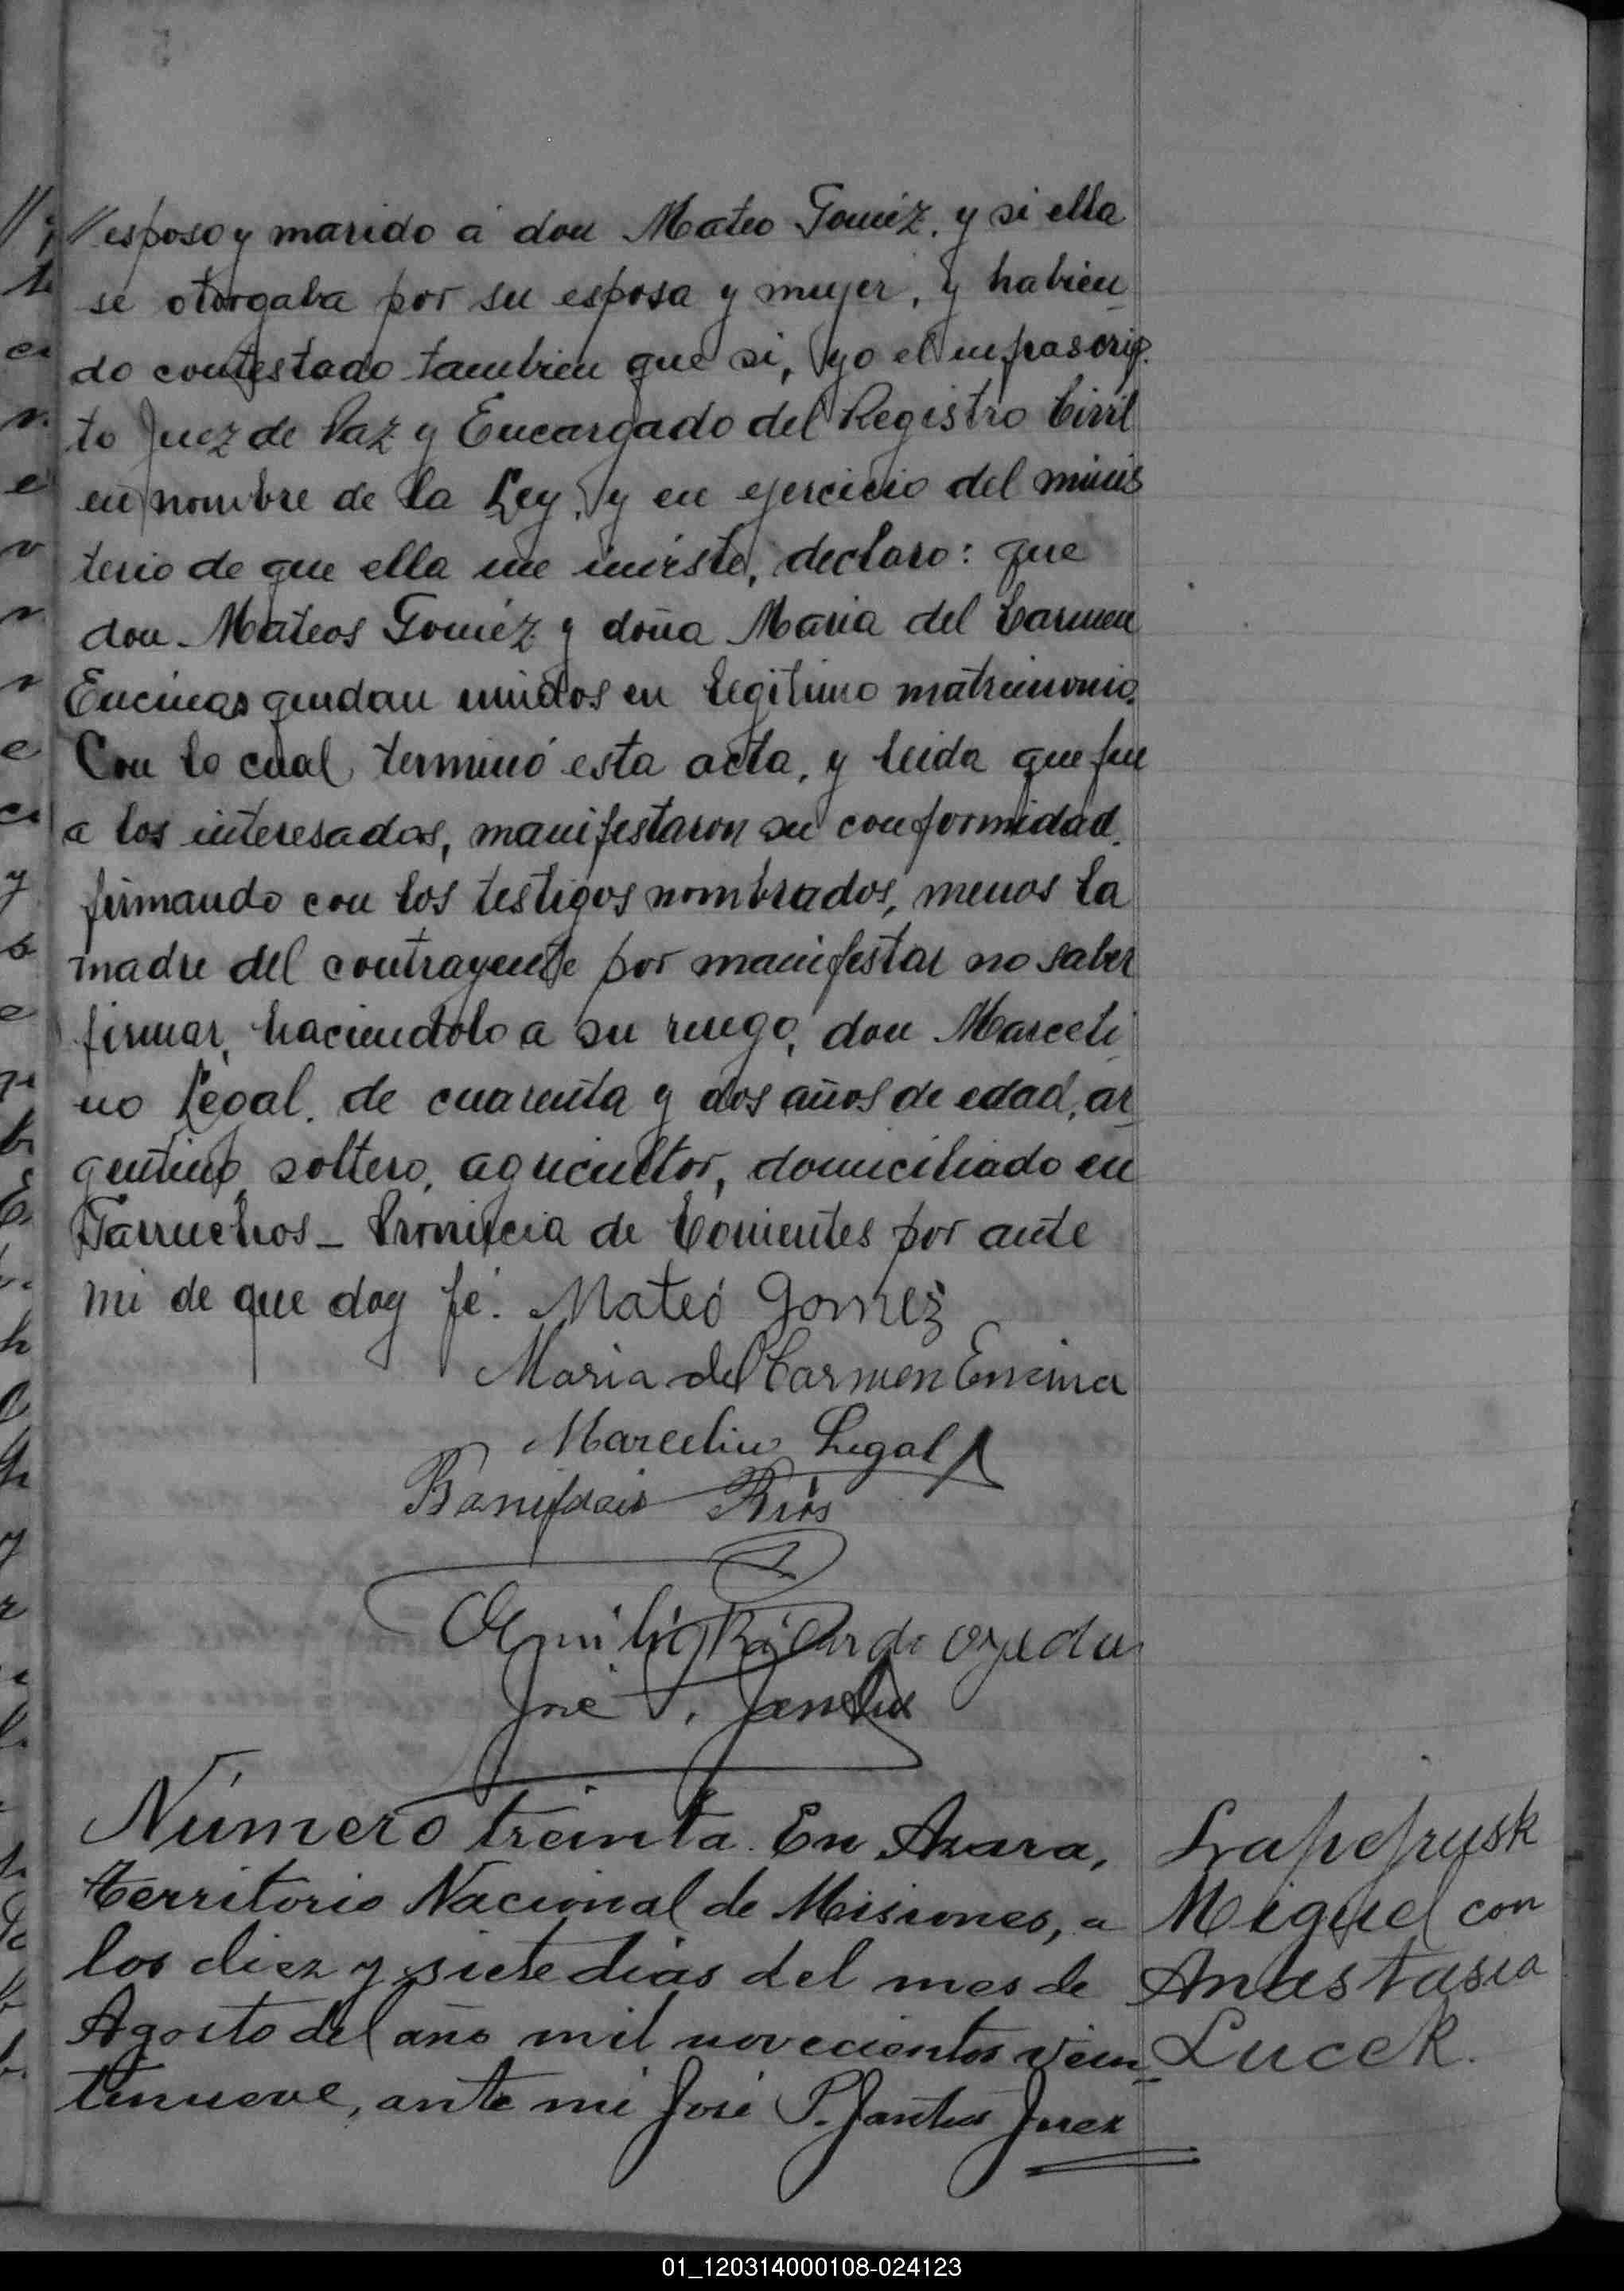 // esposo y marido á don Mateo Gomez, y si ella
se otorgaba por su esposa y mujer, y habien
do contestado tambien que si, yo el infrascrip.
to Juez de Paz y Encargado del Registro Civil
en nombre de la Ley, y en ejercicio del minis
terio de que ella me inviste, declaro: que
don Mateos Gomez y doña Maria del Carmen
Encinas quedan unidos en legitimo matrimonio.
Con lo cual terminó esta acta, y leida que fue
a los interesados, manifestaron su conformidad,
firmando con los testigos nombrados, menos la
madre del contrayente por manifestar no saber
firmar, haciendolo a su ruego, don Marceli
no Legal, de cuarenta y dos años de edad, ar
gentino, soltero, agricultor, domiciliado en
Garruchos - Provincia de Corrientes por ante
mi de que doy fé. Mateó Gomez
Maria del Carmen Encina
Marcelino Legal
Bonifacio Rios
Emilio Ricardo Ojeda
José P.
Número treinta. En Azara,
territorio Nacional de Misiones, a
los diez y siete dias del mes de
Agosto del año mil novecientos vein
tinueve, ante mi José P. Juez
Miguel con
Anastasia
Lucek.
01_120314000108-024123